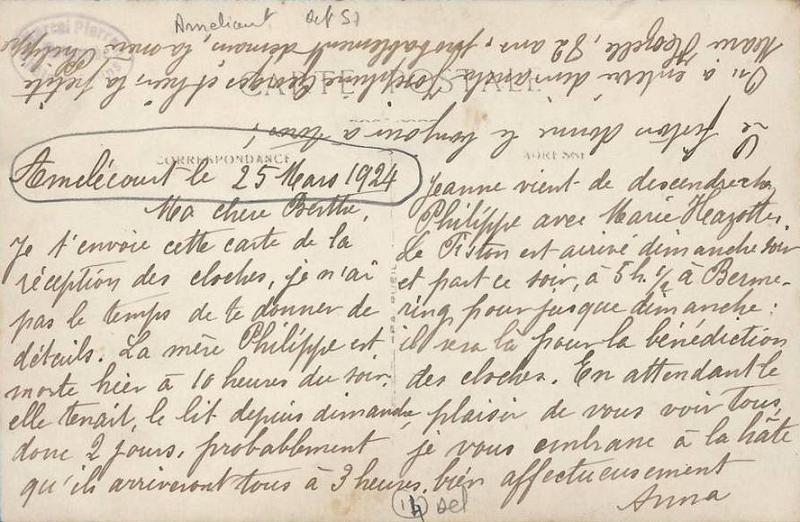 Amelécourt Del 57
CARTE POSTALE
CORRESPONDANCE
ADRESSE
Amelécourt le 25 Mars 1924
Ma chère Berthe,
Je t'envoie cette carte de la
réception des cloches, je n'ai
pas le temps de te donner de
détails. La mère Philippe est
morte hier à 10 heures du soir,
elle tenait le lit depuis dimanche,
donc 2 jours, probablement
qu'ils arriveront tous à 3 heures.
Jeanne vient de descendre chez
Philippe avec Marie
Le Piston est arrivé dimanche soir
et part ce soir, à 5h 1/2 à Berme-
ring pour jusque dimanche :
il sera là pour la bénédiction
des cloches. En attendant le
plaisir de vous voir tous,
je vous embrasse à la hâte
bien affectueusement
Anna
Le Piston donne le bonjour à tous !
On a enterré dimanche Joséphine George et hier la petite
Marie 82 ans, probablement demain, la mère Philippe
14 Del